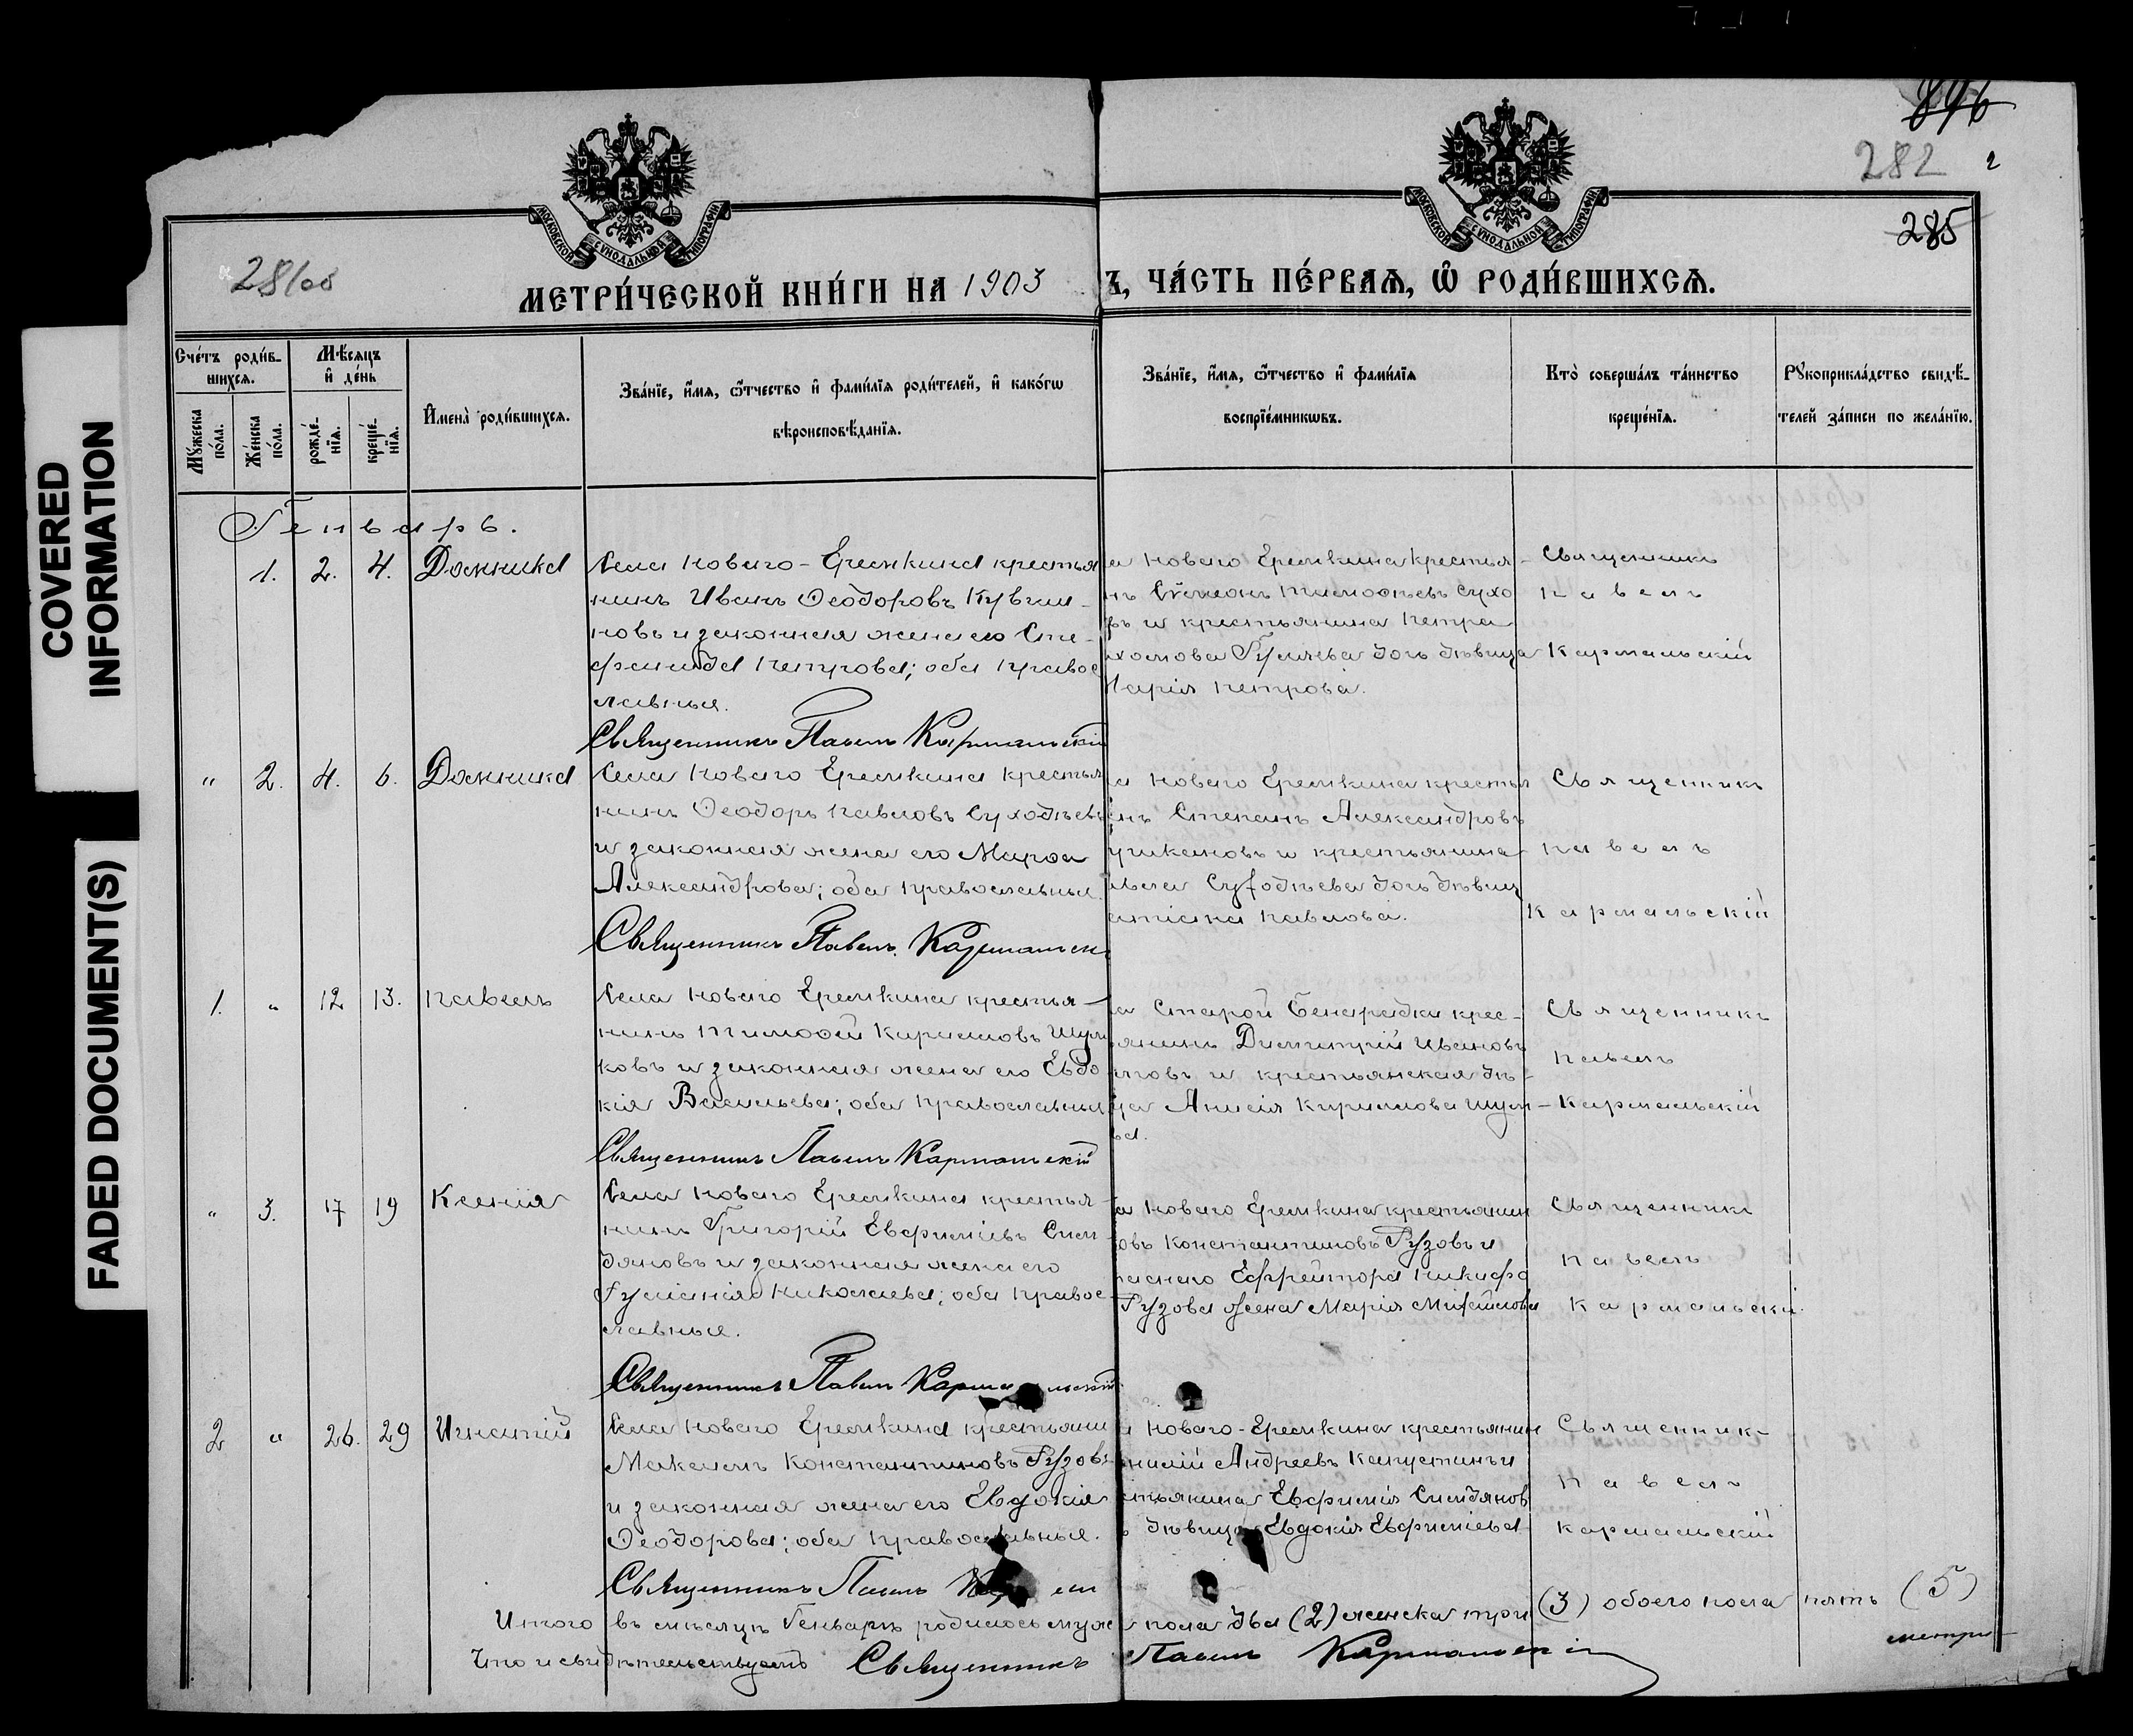 COVERED INFORMATION
FADED DOCUMENT(S)
896
282 2
285
МОСКОВСКОЙ СУНОДАЛЬНОЙ ТИПОГРАФІИ
МОСКОВСКОЙ СУНОДАЛЬНОЙ ТИПОГРАФІИ
МЕТРИ́ЧЕСКОЙ КНИ́ГИ НА 1903
Ъ, ЧА́СТЬ ПЕ́РВАѦ, Ѡ҆ РОДИ́ВШИХСѦ.
Сче́тъ роди́в-
шихсѧ.
Мꙋ́жеска по́ла.
Же́нска по́ла.
Мѣ́сѧцъ и҆ де́нь
рожде́-нїѧ.
креще́-нїѧ.
И҆мена̀ роди́вшихсѧ.
Зва́нїе, и҆́мѧ, ѻ҆́тчество и҆ фами́лїѧ роди́телей, и҆ како́гѡ
вѣроисповѣ́данїѧ.
Зва́нїе, и҆́мѧ, ѻ҆́тчество и҆ фами́лїѧ
воспрїе́мникѡвъ.
Кто̀ соверша́лъ та́инство
креще́нїѧ.
Рꙋкоприкла́дство свидѣ́-
телей за́писи по жела́нїю.
Генварь.
1. 2. 4. Домника
Села Новаго-Еремкина крестья
нинъ Иванъ Ѳеодоровъ Кувши-
новъ и законная жена его Сте-
фанида Петрова; оба правос
лавные.
Священникъ Павелъ Кармальскій
а Новаго Еремкина крестья-
нъ Сѵмеонъ Тимоѳеевъ Сухо
въ и крестьянина Петра
Гуляева дочь дѣвица
Марія Петрова.
Священникъ
Павелъ
Кармальскій
" 2. 4. 6. Домника
Села Новаго Еремкина крестья
нинъ Ѳеодоръ Павловъ Суходѣевъ
и законная жена его Марѳа
Александрова; оба православные.
Священникъ Павелъ Кармальск
а Новаго Еремкина крестья
нъ Степанъ Александровъ
и крестьянина
вла Суходѣева дочь дѣвиц
атіана Павлова.
Священникъ
Павелъ
Кармальскій
1. " 12 13. Павелъ
Села Новаго Еремкина крестья-
нинъ Тимоѳей Кириловъ Шум
ковъ и законная жена его Евдо
кія Васильева; оба православные
Священникъ Павелъ Кармальскій
а Старой Бинарадки крес-
янинъ Димитрій Ивановъ
и крестьянская дѣ-
ца Анисія Кириллова Шум-
ва.
Священникъ
Павелъ
Кармальскій
" 3. 17 19 Ксенія
Села Новаго Еремкина крестья-
нинъ Григорій Евфиміевъ Сим
дяновъ и законная жена его
Гуліанія Николаева; оба правос-
лавные.
Священникъ Павелъ Кармальскій
а Новаго Еремкина крестьянин
овъ Константиновъ Гузовъ и
паснаго Ефрейтора Никифо
Гузова жена Марія Михайлова
Священникъ
Павелъ
Кармальскі
2 " 26. 29 Игнатій
Села Новаго Еремкина крестьянин
Максимъ Константиновъ Гузовъ
и законная жена его Евдокія
Ѳеодорова; оба православные.
Священникъ Павелъ
а Новаго-Еремкина крестьянин
силій Андреевъ Капустинъ и
стьянина Евфимія Симдянов
ь дѣвица Евдокія Евфиміева
Священник-
Павелъ
Кармальскій
Итого въ мѣсяцѣ Генварѣ родилось муже пола два (2) женска три (3) обоего пола пять (5)
Что и свидѣтельствуетъ Священникъ Павелъ Кармальскій